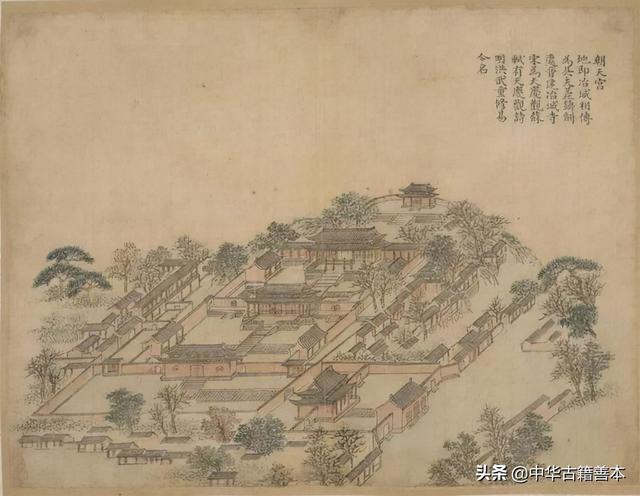 朝天宮
地即冶城相傳
為吳夫差鑄劍
處晉建冶城寺
宋為天慶觀蘇
軾有天慶觀詩
明洪武重修易
今名
头条 @中华古籍善本